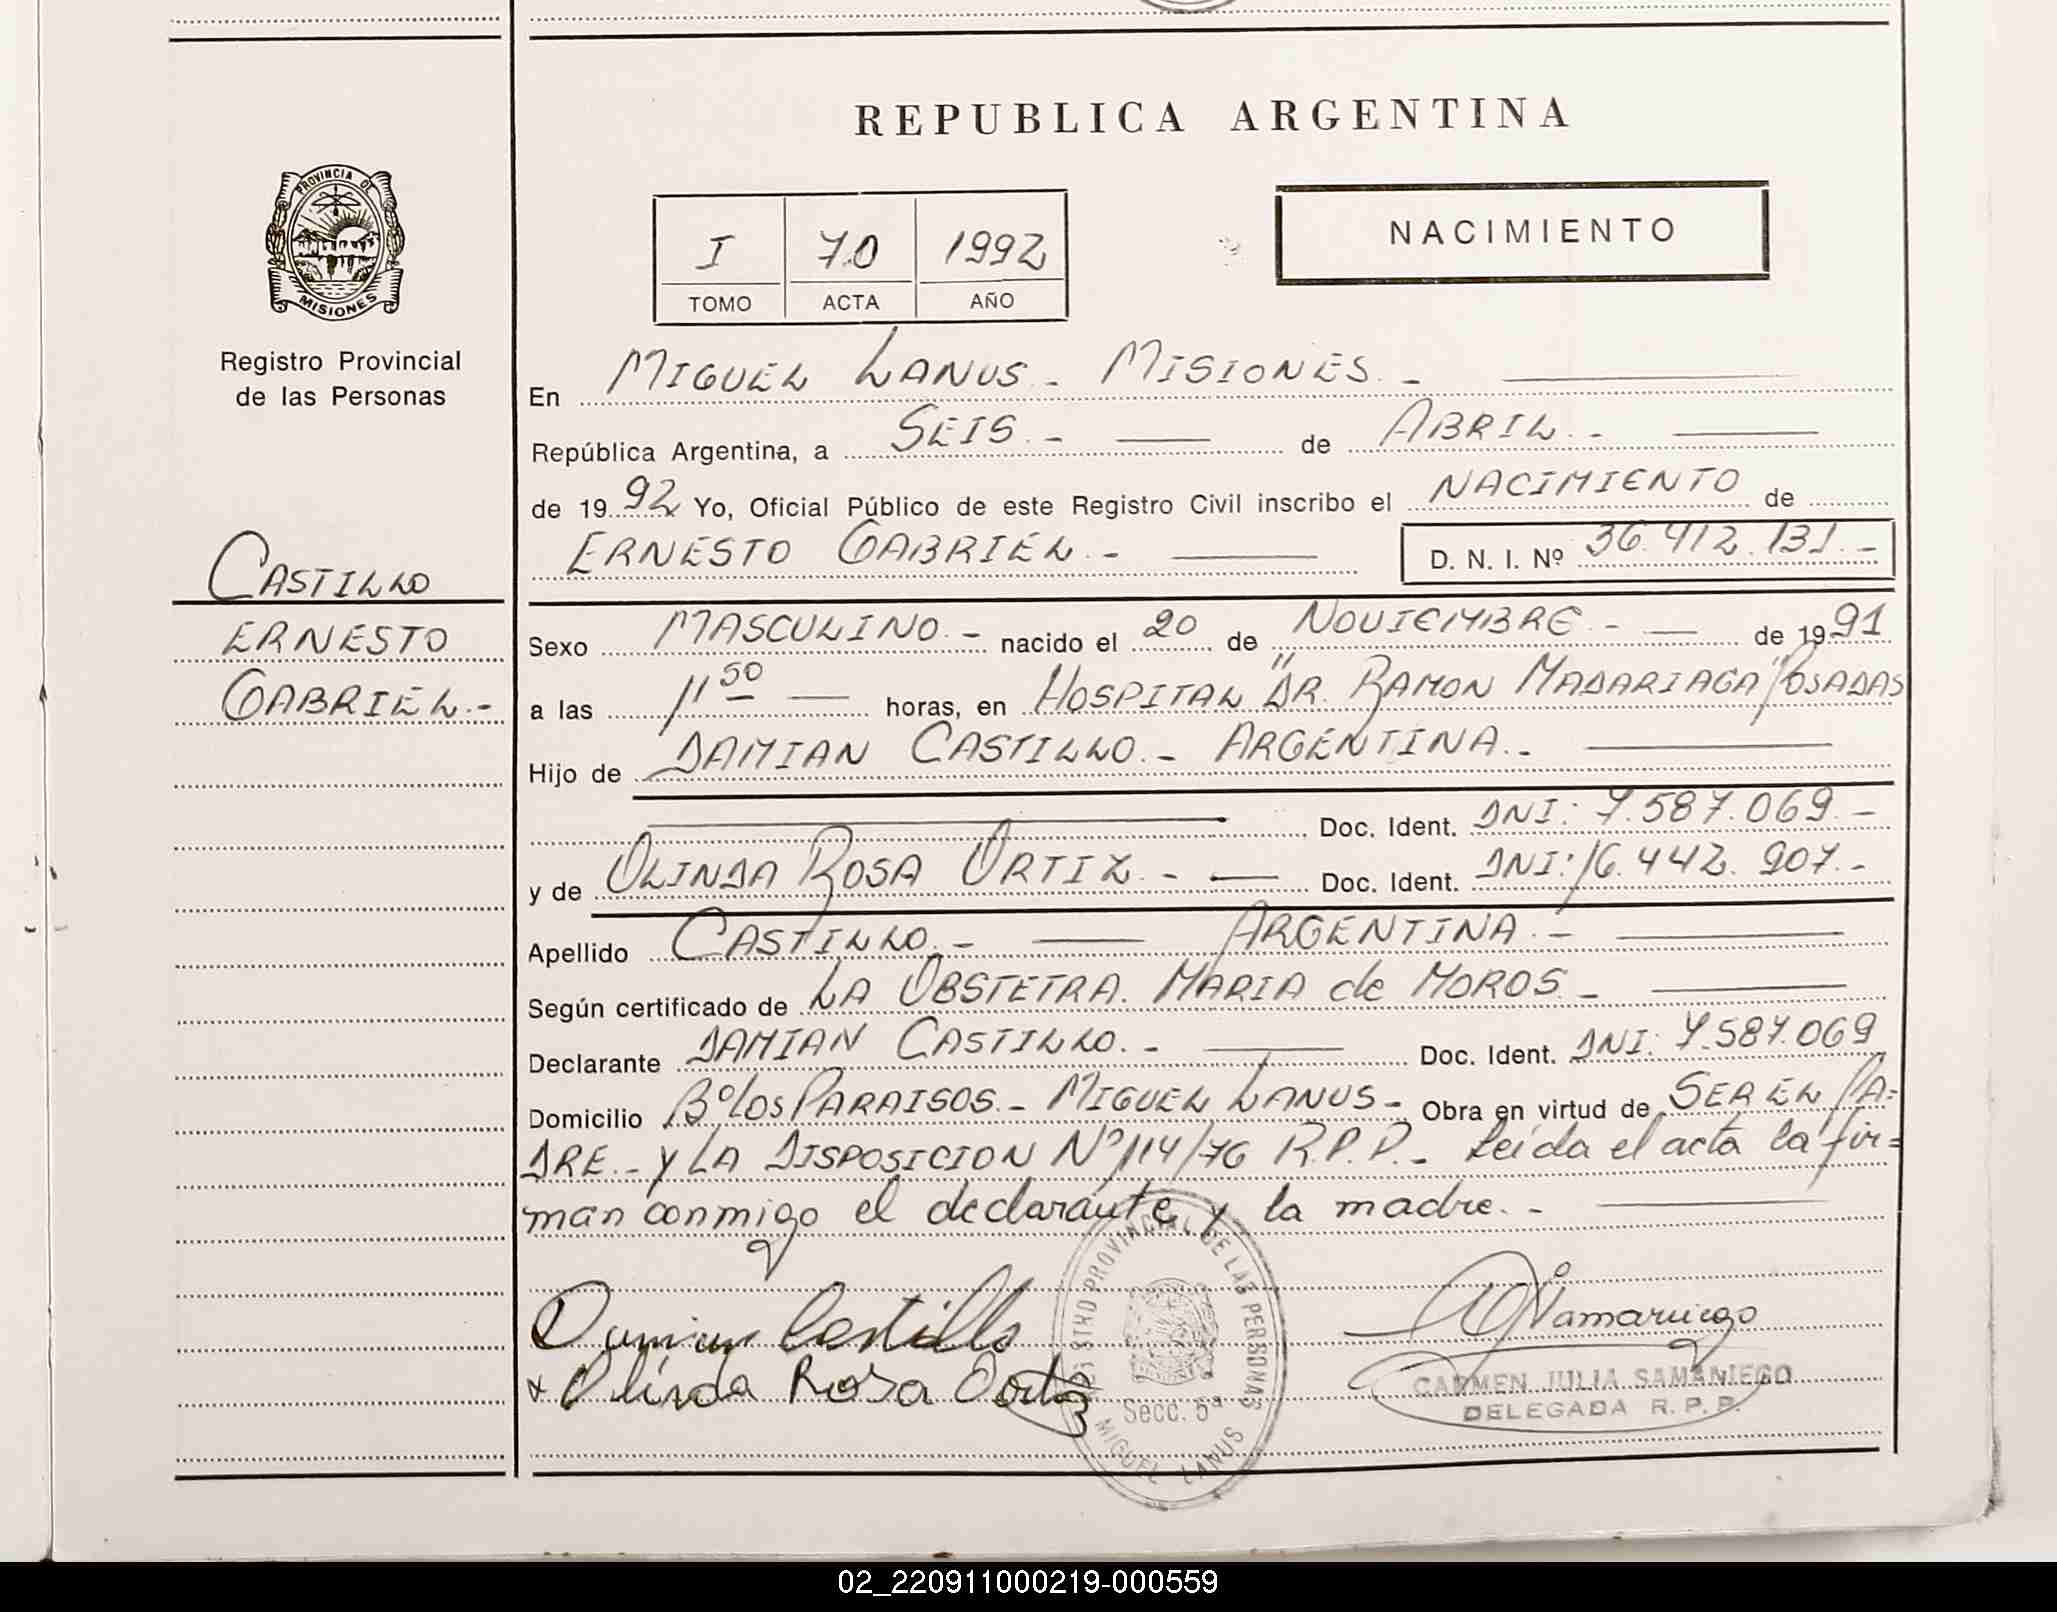 REPUBLICA ARGENTINA
PROVINCIA DE
MISIONES
Registro Provincial
de las Personas
CASTILLO
ERNESTO
GABRIEL.-
I 70 1992
TOMO ACTA AÑO
NACIMIENTO
En MIGUEL LANUS - MISIONES. -
República Argentina, a SEIS. - de ABRIL. -
de 19 92 Yo, Oficial Público de este Registro Civil inscribo el NACIMIENTO de
ERNESTO GABRIEL. - D. N. I. Nº 36.412.131. -
Sexo MASCULINO. - nacido el 20 de NOVIEMBRE. - de 19 91
a las 11 50 horas, en HOSPITAL "DR. RAMON MADARIAGA" POSADAS
Hijo de DAMIAN CASTILLO. - ARGENTINA. -
Doc. Ident. DNI: 7.587.069. -
y de OLINDA ROSA ORTIZ. - Doc. Ident. DNI: 16.442.907. -
Apellido CASTILLO. - ARGENTINA. -
Según certificado de LA OBSTETRA. MARIA de MOROS. -
Declarante DAMIAN CASTILLO. - Doc. Ident. DNI: 7.587.069
Domicilio Bº LOS PARAISOS. - MIGUEL LANUS - Obra en virtud de SER EL PA=
DRE. - Y LA DISPOSICION Nº 114/76 R.P.P. - Leída el acta la fir=
man conmigo el declarante y la madre. -
Damian Castillo
Olinda Rosa Ortiz
REGISTRO PROVINCIAL DE LAS PERSONAS
Secc. 6ª
MIGUEL LANUS
Samaniego
CARMEN JULIA SAMANIEGO
DELEGADA R. P. P.
02_220911000219-000559